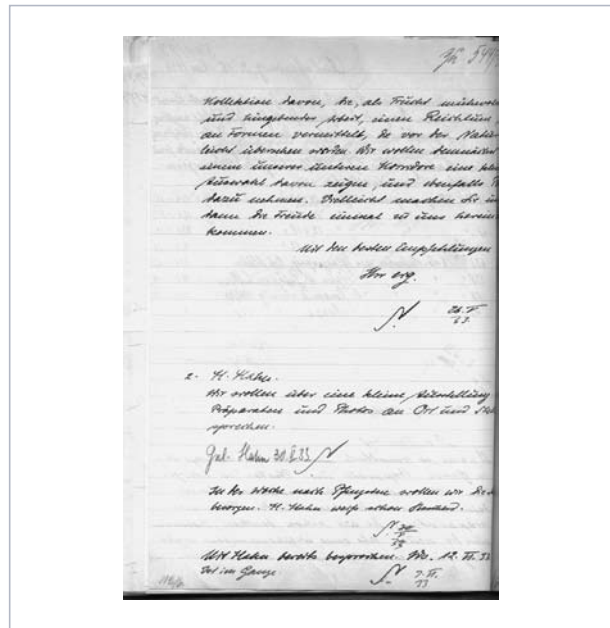 Kollektion davon, die, als Frucht
und hingebender Arbeit, einen Reichtum
an Formen vermittelt, die vor der Natur
leicht übersehen werden. Wir wollen demnächst
einem unserer unteren Korridore eine klei
Auswahl davon zeigen, und ebenfalls
dazu nehmen. Vielleicht machen Sie u
dann die Freude einmal zu uns herein
kommen.
Mit den besten Empfehlungen
Ihr erg.
26.V.
33.
2. H. Hahn.
Wir wollen über eine kleine Ausstellung
Präparaten und Photos an Ort und Stel
sprechen.
Gel. Hahn 30.V.33
In der Woche nach Pfingsten wollen wir die
besorgen. H. Hahn weiß schon Bescheid.
30
V
33
Mit Hahn bereits besprochen. 12. VI. 33
Ist im Gange
VI.
33